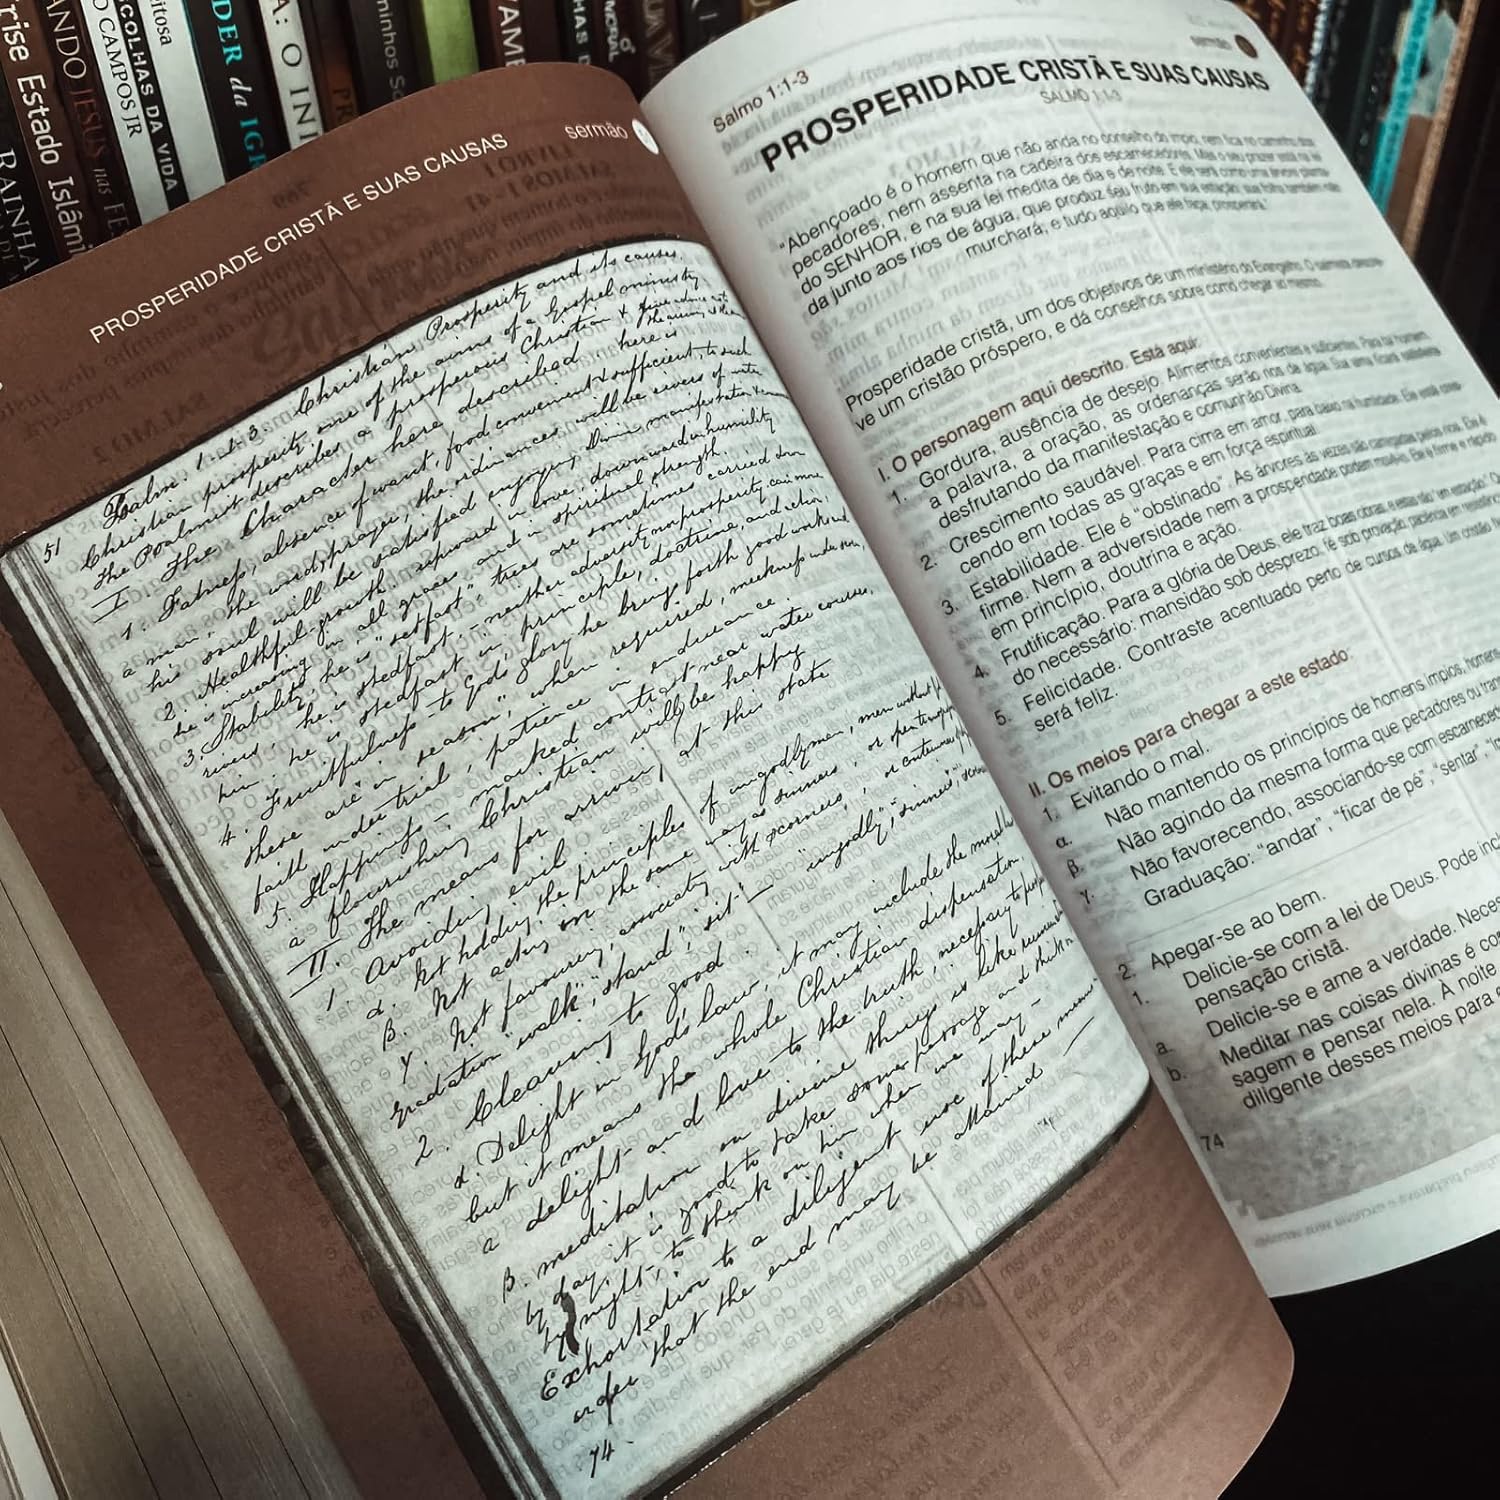 rise Estado Islâmi
RAINHA
ANDO JESUS nas FE
O CAMPOS JR
ESCOLHAS DA VIDA
DER da IG
A: O INI
minhos
MORAL
PROSPERIDADE CRISTÃ E SUAS CAUSAS
sermão
51
Psalm. 1. 1-3. Christian Prosperity and its causes.
Christian prosperity, one of the aims of a Gospel ministry
the Psalmist describes a prosperous Christian & give advice
I. The Character here described here is
1. Fatness, absence of want, food convenient & sufficient, to such
a man, the word, prayer, the ordinances will be rivers of water
his soul will be satisfied enjoying Divine manifestation &
2. Healthful growth upward in love, downward in humility
he is increasing in all graces and in spiritual strength.
3. Stability, he is "setfast", trees are sometimes carried down
rivers, he is stedfast, – neither adversity nor prosperity can move
him. he is stedfast in principle, doctrine, and action,
4. Fruitfulness – to God's glory he brings forth good works and
these are "in season", when required, meekness under scorn,
faith under trial, patience in endurance.
5. Happiness – marked contrast near water courses,
a flourishing Christian will be happy
II. The means for arriving at this state
1. Avoiding evil.
α. Not holding the principles of ungodly men, men without
β. Not acting in the same way as sinners, or open
γ. Not favouring, associating with scorners, or
Gradation "walk", "stand", "sit" – "ungodly", "sinners",
2. Cleaving to good.
α. Delight in God's law, it may include the moral
but it means the whole Christian dispensation,
a delight and love to the truth, necessary to
β. meditation on divine things is like
by day, it is good to take some passage and think
by night, to think on him when we may –
Exhortation to a diligent use of these means
order that the end may be attained
74.
sermão
Salmo 1:1-3
PROSPERIDADE CRISTÃ E SUAS CAUSAS
SALMO 1:1-3
"Abençoado é o homem que não anda no conselho do ímpio, nem fica no caminho dos
pecadores, nem assenta na cadeira dos escarnecedores. Mas o seu prazer está na lei
do SENHOR, e na sua lei medita de dia e de noite. E ele será como uma árvore planta-
da junto aos rios de água, que produz seu fruto em sua estação; sua folha também não
murchará; e tudo aquilo que ele faça, prosperará."
Prosperidade cristã, um dos objetivos de um ministério do Evangelho. O salmista descre-
ve um cristão próspero, e dá conselhos sobre como chegar ao mesmo.
I. O personagem aqui descrito. Está aqui:
1. Gordura, ausência de desejo. Alimentos convenientes e suficientes. Para tal homem,
a palavra, a oração, as ordenanças serão rios de água. Sua alma ficará satisfeita
desfrutando da manifestação e comunhão Divina.
2. Crescimento saudável. Para cima em amor, para baixo na humildade. Ele está cres-
cendo em todas as graças e em força espiritual.
3. Estabilidade. Ele é "obstinado". As árvores às vezes são carregadas pelos rios. Ele é
firme. Nem a adversidade nem a prosperidade podem movê-lo. Ele é firme e rápido
em princípio, doutrina e ação.
4. Frutificação. Para a glória de Deus, ele traz boas obras, e estas são "em estação". Quan
do necessário: mansidão sob desprezo, fé sob provação, paciência em
5. Felicidade. Contraste acentuado perto de cursos de água. Um cristão,
será feliz.
II. Os meios para chegar a este estado:
1. Evitando o mal.
α. Não mantendo os princípios de homens ímpios, homens
β. Não agindo da mesma forma que pecadores ou
γ. Não favorecendo, associando-se com escarnece
Graduação: "andar", "ficar de pé", "sentar",
2. Apegar-se ao bem.
1. Delicie-se com a lei de Deus. Pode
pensação cristã.
Delicie-se e ame a verdade.
a. Meditar nas coisas divinas é
b. sagem e pensar nela. À noite
diligente desses meios para
74